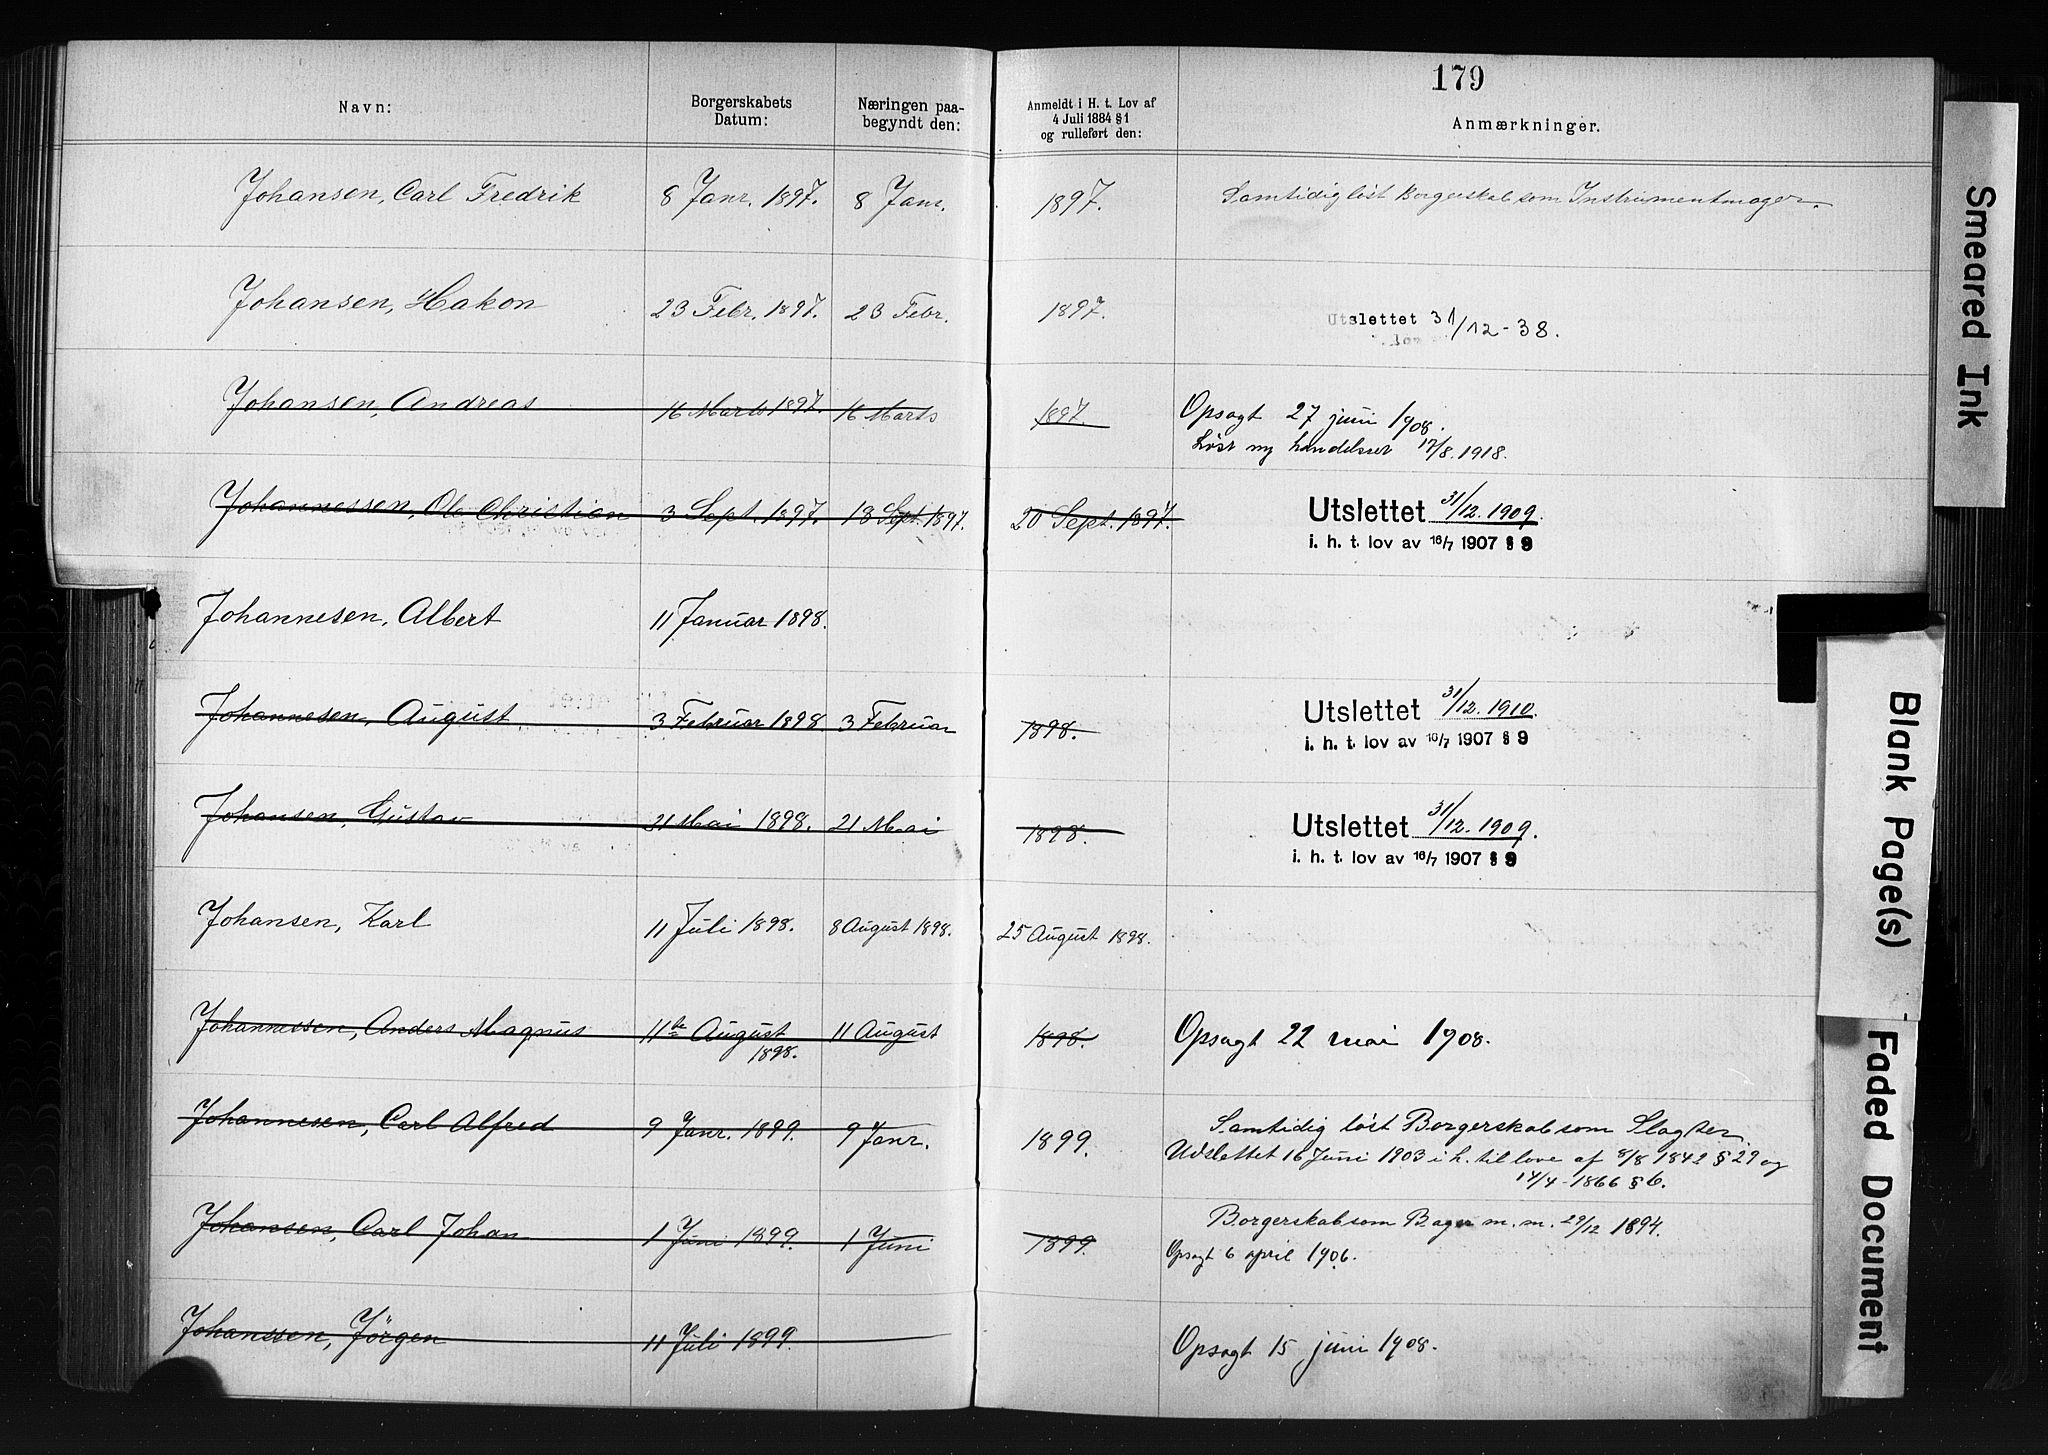 179
Navn:
Borgerskabets
Datum:
Næringen paa-
begyndt den:
Anmeldt i H. t. Lov af
4 Juli 1884 § 1
og rulleført den:
Anmærkninger.
Johansen, Carl Fredrik 8 Janr. 1897. 8 Janr. 1897. Samtidig löst Borgerskab som Instrumentmager.
Johansen, Hakon 23 Febr. 1897. 23 Febr. 1897. Utslettet 31/12-38.
Johansen, Andreas 16 Marts 1897. 16 Marts 1897. Opsagt 27 juni 1908.
Løst ny handelsret 17/8. 1918.
Johannessen, Ole Christian 3 Sept. 1897. 13 Sept. 1897. 20 Sept. 1897. Utslettet 31/12. 1909.
i. h. t. lov av 16/7 1907 § 9
Johannesen, Albert 11 Januar 1898.
Johannesen, August 3 Februar 1898 3 Februar 1898. Utslettet 31/12. 1910.
i. h. t. lov av 16/7 1907 § 9
Johansen, Gustav 21 Mai 1898. 21 Mai 1898. Utslettet 31/12. 1909.
i. h. t. lov av 16/7 1907 § 9
Johansen, Karl 11 Juli 1898. 8 August 1898. 25 August 1898.
Johannessen, Anders Magnus 11te August 1898. 11 August 1898. Opsagt 22 mai 1908.
Johannesen, Carl Alfred 9 Janr. 1899. 9 Janr. 1899. Samtidig löst Borgerskab som Slagter.
Udslettet 16 Juni 1903 i h. til love af 8/8 1842 § 29 og
14/4-1866 § 6.
Johansen, Carl Johan 1 Juni 1899. 1 Juni 1899. Borgerskab som Bager m. m. 29/12 1894.
Opsagt 6 april 1906.
Johanssen, Jörgen 11 Juli 1899. Opsagt 15 juni 1908.
Smeared Ink
Blank Page(s)
Faded Document